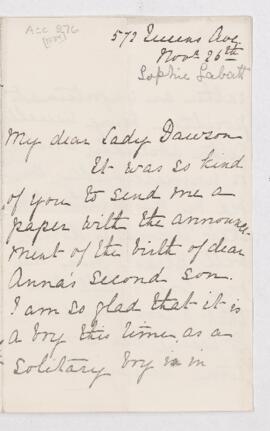 Acc 876
572 Queens Ave.
Nov. 26th
Sophie Labatt
My dear Lady Dawson
It was so kind
of you to send me a
paper with the announce-
ment of the birth of dear
Anna's second son.
I am so glad that it is
a boy this time, as a
solitary boy is in